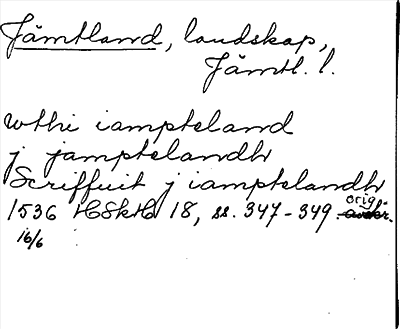 Jämtland, landskap,
Jämtl. l.
wthi iampteland
j jamptelandh
Scriffuit j iamptelandh
1536 HSkH 18, ss. 347-349 orig.
16/6